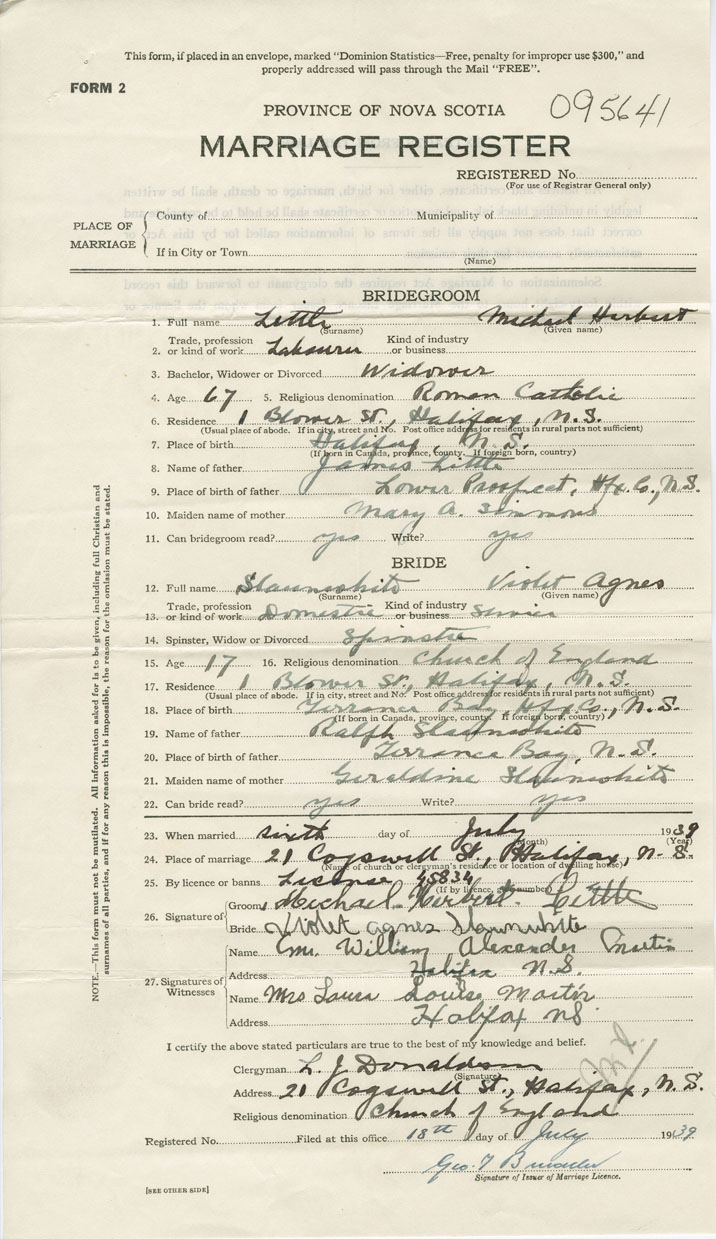 This form, if placed in an envelope, marked "Dominion Statistics—Free, penalty for improper use $300," and
properly addressed will pass through the Mail "FREE".
FORM 2
PROVINCE OF NOVA SCOTIA 095641
MARRIAGE REGISTER
REGISTERED No.
(For use of Registrar General only)
PLACE OF MARRIAGE
County of Municipality of
If in City or Town
(Name)
BRIDEGROOM
1. Full name Little Michael Herbert
(Surname) (Given name)
2. Trade, profession or kind of work Labourer Kind of industry or business
3. Bachelor, Widower or Divorced Widower
4. Age 67 5. Religious denomination Roman Catholic
6. Residence 1 Blower St., Halifax, N.S.
(Usual place of abode. If in city, street and No. Post office address for residents in rural parts not sufficient)
7. Place of birth Halifax, N.S.
(If born in Canada, province, county. If foreign born, country)
8. Name of father James Little
9. Place of birth of father Lower Prospect, Hfx. Co., N.S.
10. Maiden name of mother Mary A. Simmons
11. Can bridegroom read? yes Write? yes
BRIDE
12. Full name Slaunwhite Violet Agnes
(Surname) (Given name)
13. Trade, profession or kind of work Domestic Kind of industry or business Service
14. Spinster, Widow or Divorced Spinster
15. Age 17 16. Religious denomination Church of England
17. Residence 1 Blower St., Halifax, N.S.
(Usual place of abode. If in city, street and No. Post office address for residents in rural parts not sufficient)
18. Place of birth Terrance Bay, Hfx Co., N.S.
(If born in Canada, province, county. If foreign born, country)
19. Name of father Ralph Slaunwhite
20. Place of birth of father Terrance Bay, N.S.
21. Maiden name of mother Geraldine Slaunwhite
22. Can bride read? yes Write? yes
23. When married sixth day of July 1939
(Month) (Year)
24. Place of marriage 21 Cogswell St., Halifax, N.S.
(Name of church or clergyman's residence or location of dwelling house)
25. By licence or banns License 45834
(If by licence, give number)
26. Signature of
Groom Michael Herbert Little
Bride Violet agnes Slaunwhite
27. Signatures of Witnesses
Name Mr. William Alexander Martin
Address Halifax N.S.
Name Mrs Laura Louise Martin
Address Halifax NS
I certify the above stated particulars are true to the best of my knowledge and belief.
Clergyman L. J. Donaldson
(Signature)
Address 21 Cogswell St., Halifax, N.S.
Religious denomination Church of England
Registered No. Filed at this office 18th day of July 1939
Geo. T
Signature of Issuer of Marriage Licence.
[SEE OTHER SIDE]
NOTE.—This form must not be mutilated. All information asked for is to be given, including full Christian and
surnames of all parties, and if for any reason this is impossible, the reason for the omission must be stated.